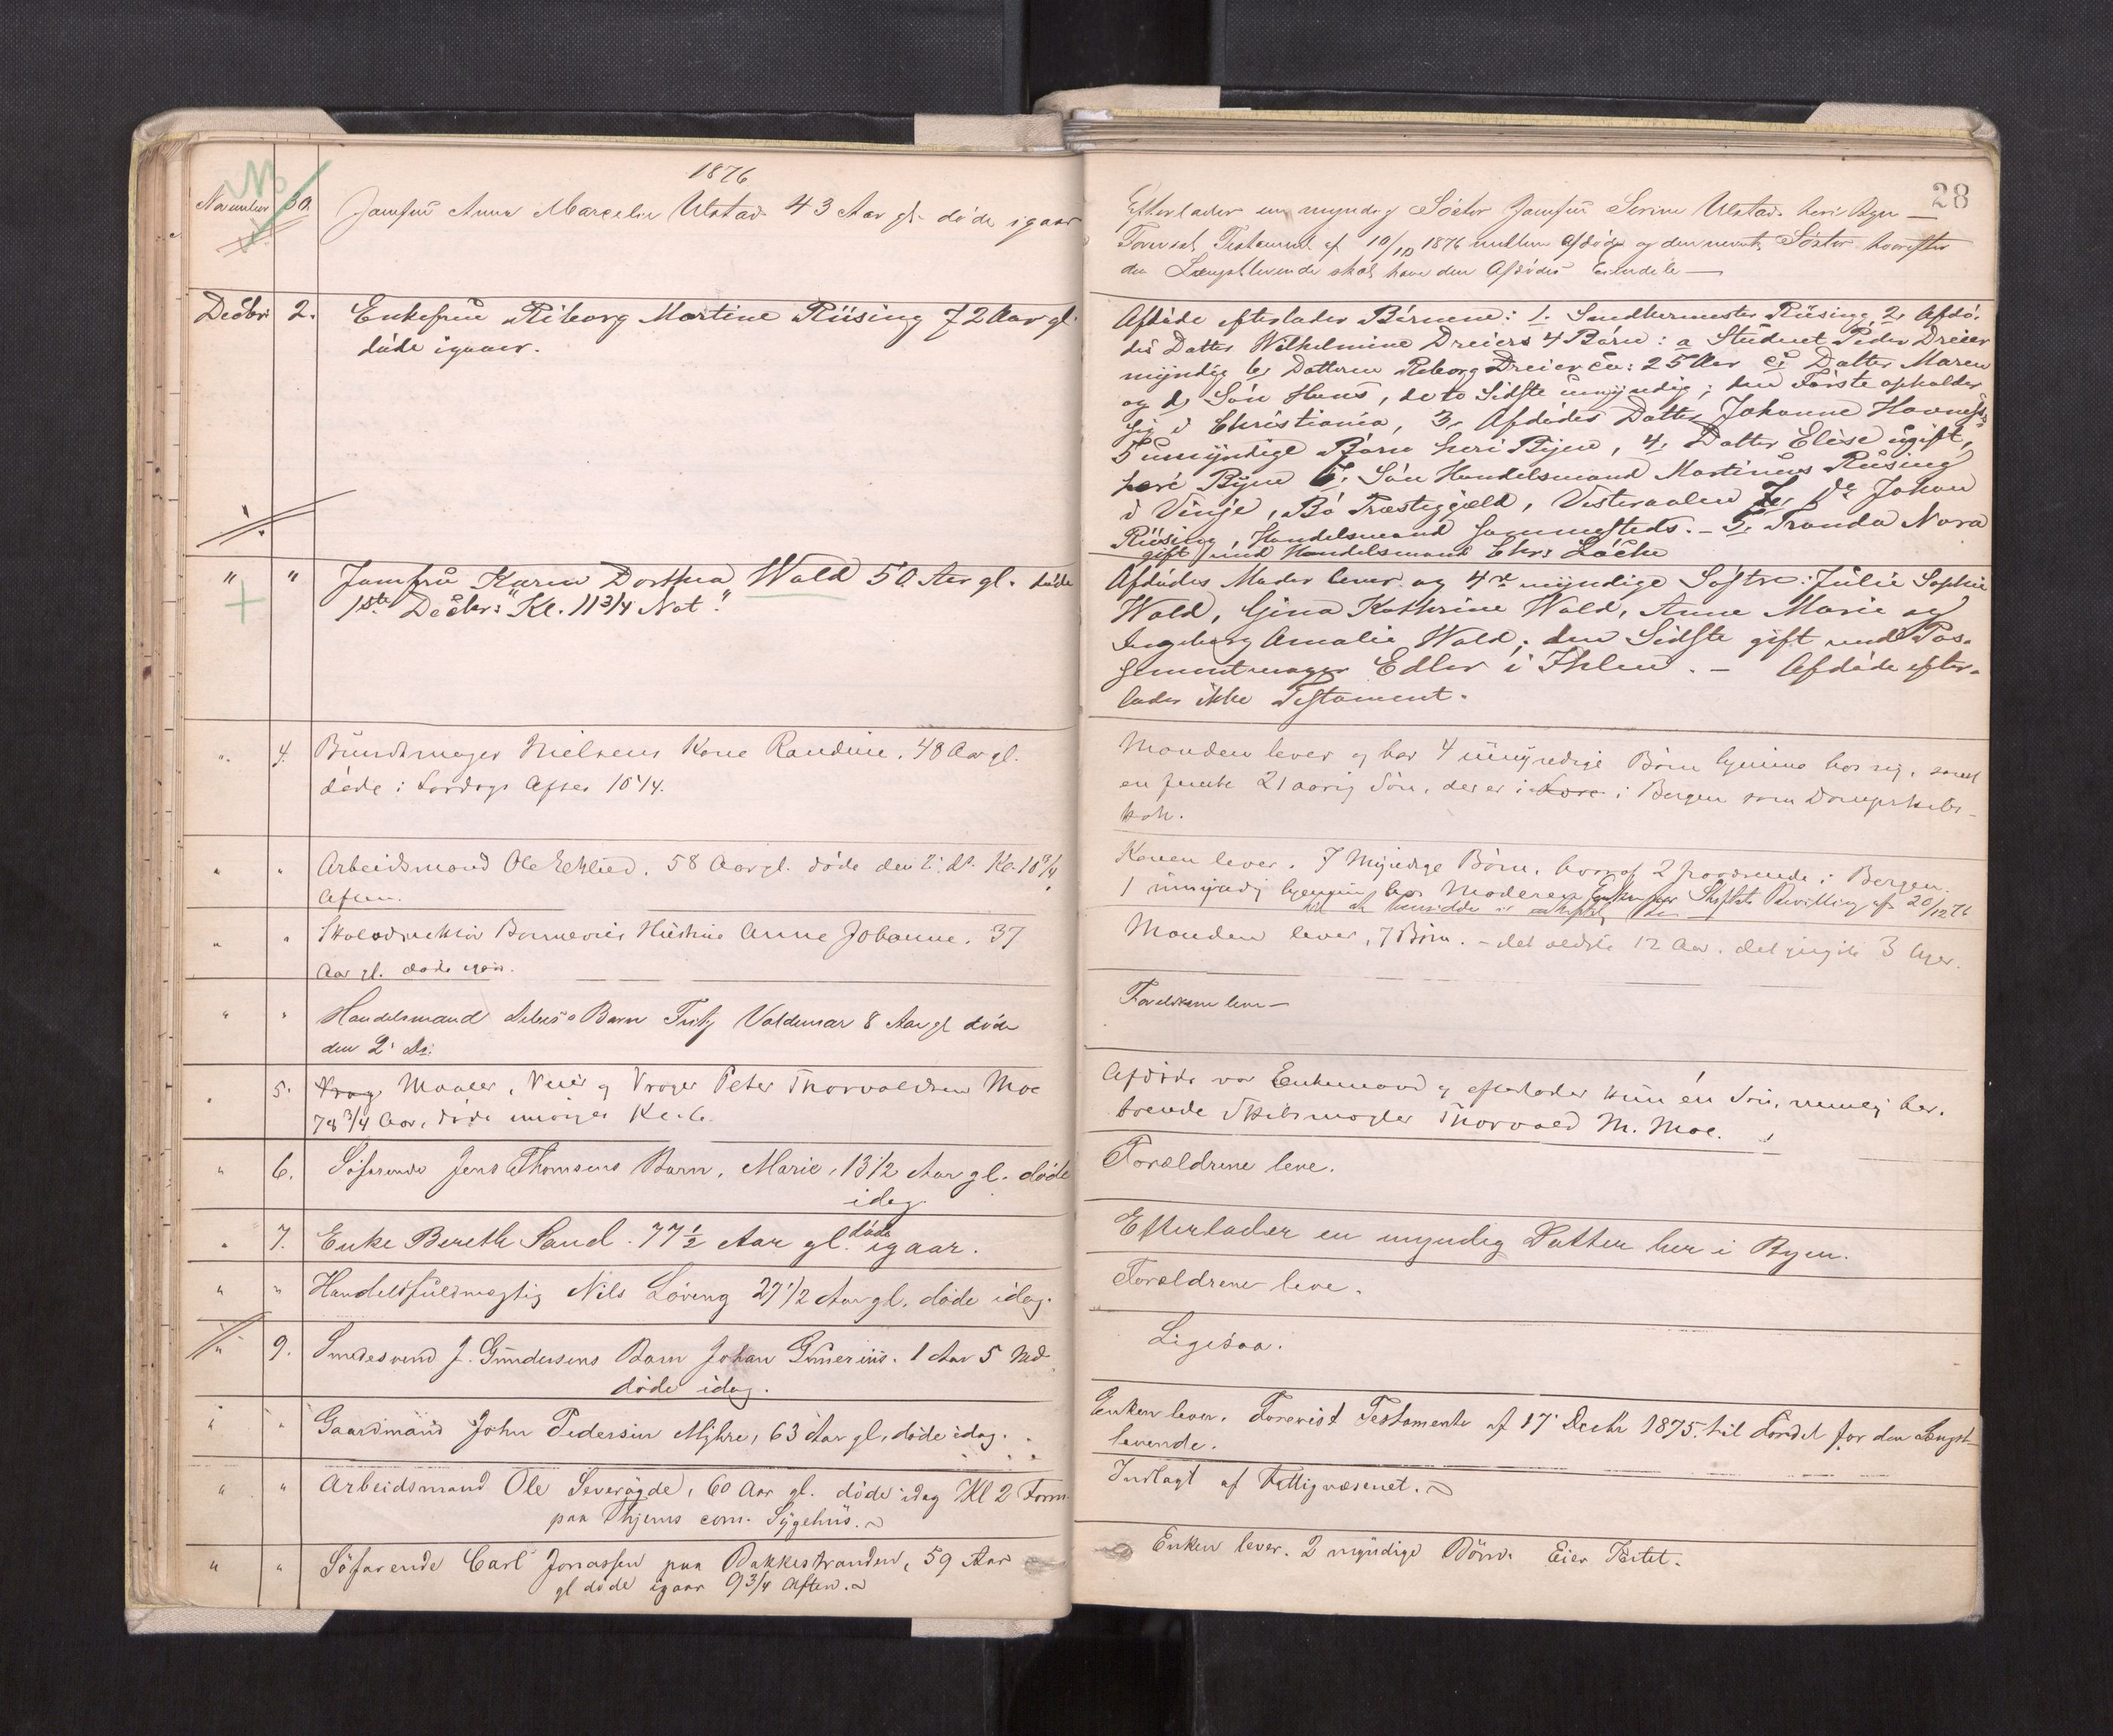 1876
28
November 30. Jomfru Anna Marcelie Ulstad 43 Aar gl. døde igaar
Efterlader en myndig Søster Jomfru Serine Ulstad her i Byen —
Forevist Testament af 10/10 1876 mellem Afdøde og den nævnte Søster hvorefter
den Længstlevende skal have den Afdødes Eiendele —
Decbr. 2. Enkefrue Riborg Martine Rüsing 72 Aar gl.
døde igaar.
Afdøde efterlader Børnene: 1. Rüsing 2, Afdø-
des Datter Wilhelmine Dreiers 4 Børn: a Student Peder Dreier
myndig b, Datteren Riborg Dreier ca: 25 Aar c, Datter Maren
og d, Søn Hans, de to Sidste umyndig; den Første opholder
sig i Christiania, 3, Afdødes Datter Johanne
5 umyndige Børn her i Byen, 4, Datter Elise ugift,
her i Byen Søn Handelsmand Martinus Rüsing
i Vinje, Bø Præstegjæld, Vesteraalen Do Johan
Rüsing, Handelsmand sammesteds. – Tranda Nora
gift med Handelsmand Chr: Löche
" " Jomfru Karen Dorthea Wald 50 Aar gl. døde
1ste Decbr: Kl. 11 3/4 Nat.
Afdødes Moder lever og 4re myndige Søstre: Julie Sophie
Wald, Gina Kathrine Wald, Anne Marie og
Ingeborg Amalie Wald; den Sidste gift med Pos-
sementmager Edler i Ihlen. – Afdøde efter-
lader ikke Testament.
" 4. Bundtmager Nielsens Kone Randine, 48 Aar gl.
døde i Lørdags Aften 10 1/4.
Manden lever og har 4 umyndige Børn hjemme hos sig, samt
en femte 21 aarig Søn, der er i Bergen som Dampskibs-
kok.
" " Arbeidsmand Ole Eklied, 58 Aar gl. døde den 2. ds. Kl. 10 3/4
Aften.
Konen lever. 7 Myndige Børn, hvoraf 2 fraværende i Bergen.
1 umyndig hjemme hos Moderen Enken har Skifte Bevilling af 20/12 76
" " Hustru Anne Johanne. 37
Aar gl. døde igaar.
Manden lever, 7 Børn. – det ældste 12 Aar. det yngste 3 Uger.
" " Handelsmand Barn Fritz Valdemar 8 Aar gl døde
den 2' ds.
Forældrene leve —
" 5. Maaler, Veier og Vrager Peter Thorvaldsen Moe
78 3/4 Aar, døde imorges Kl. 6.
Afdøde var Enkemand og efterlader kun én Søn, nemlig her-
boende Skibsmægler Thorvald M. Moe.
" 6. Søfarende Jens Thomsens Barn, Marie, 13 1/2 Aar gl. døde
idag.
Forældrene leve.
" 7. Enke Bereth Sand. 77 1/2 Aar gl. døde igaar.
Efterlader en myndig Datter her i Byen.
" " Handelsfuldmægtig Nils Løveng 27 1/2 Aar gl. døde idag.
Forældrene leve.
" 9. Smedesvend J. Gundersens Barn Johan Gunerius. 1 Aar 5 Md
døde idag.
Ligesaa.
" " Gaardmand John Pedersen Myhre, 63 Aar gl, døde idag.
Enken lever. Forevist Testamente af 17' Decbr 1875. til Fordel for den Længst-
levende.
" " Arbeidsmand Ole Severøgde, 60 Aar gl. døde idag Kl 2 Form.
paa Thjems com. Sygehus.
Indlagt af Fattigvæsenet.
" " Søfarende Carl Jonassen paa Bakkestranden, 59 Aar
gl døde igaar 9 3/4 Aften.
Enken lever. 2 myndige Børn. Eier Intet.